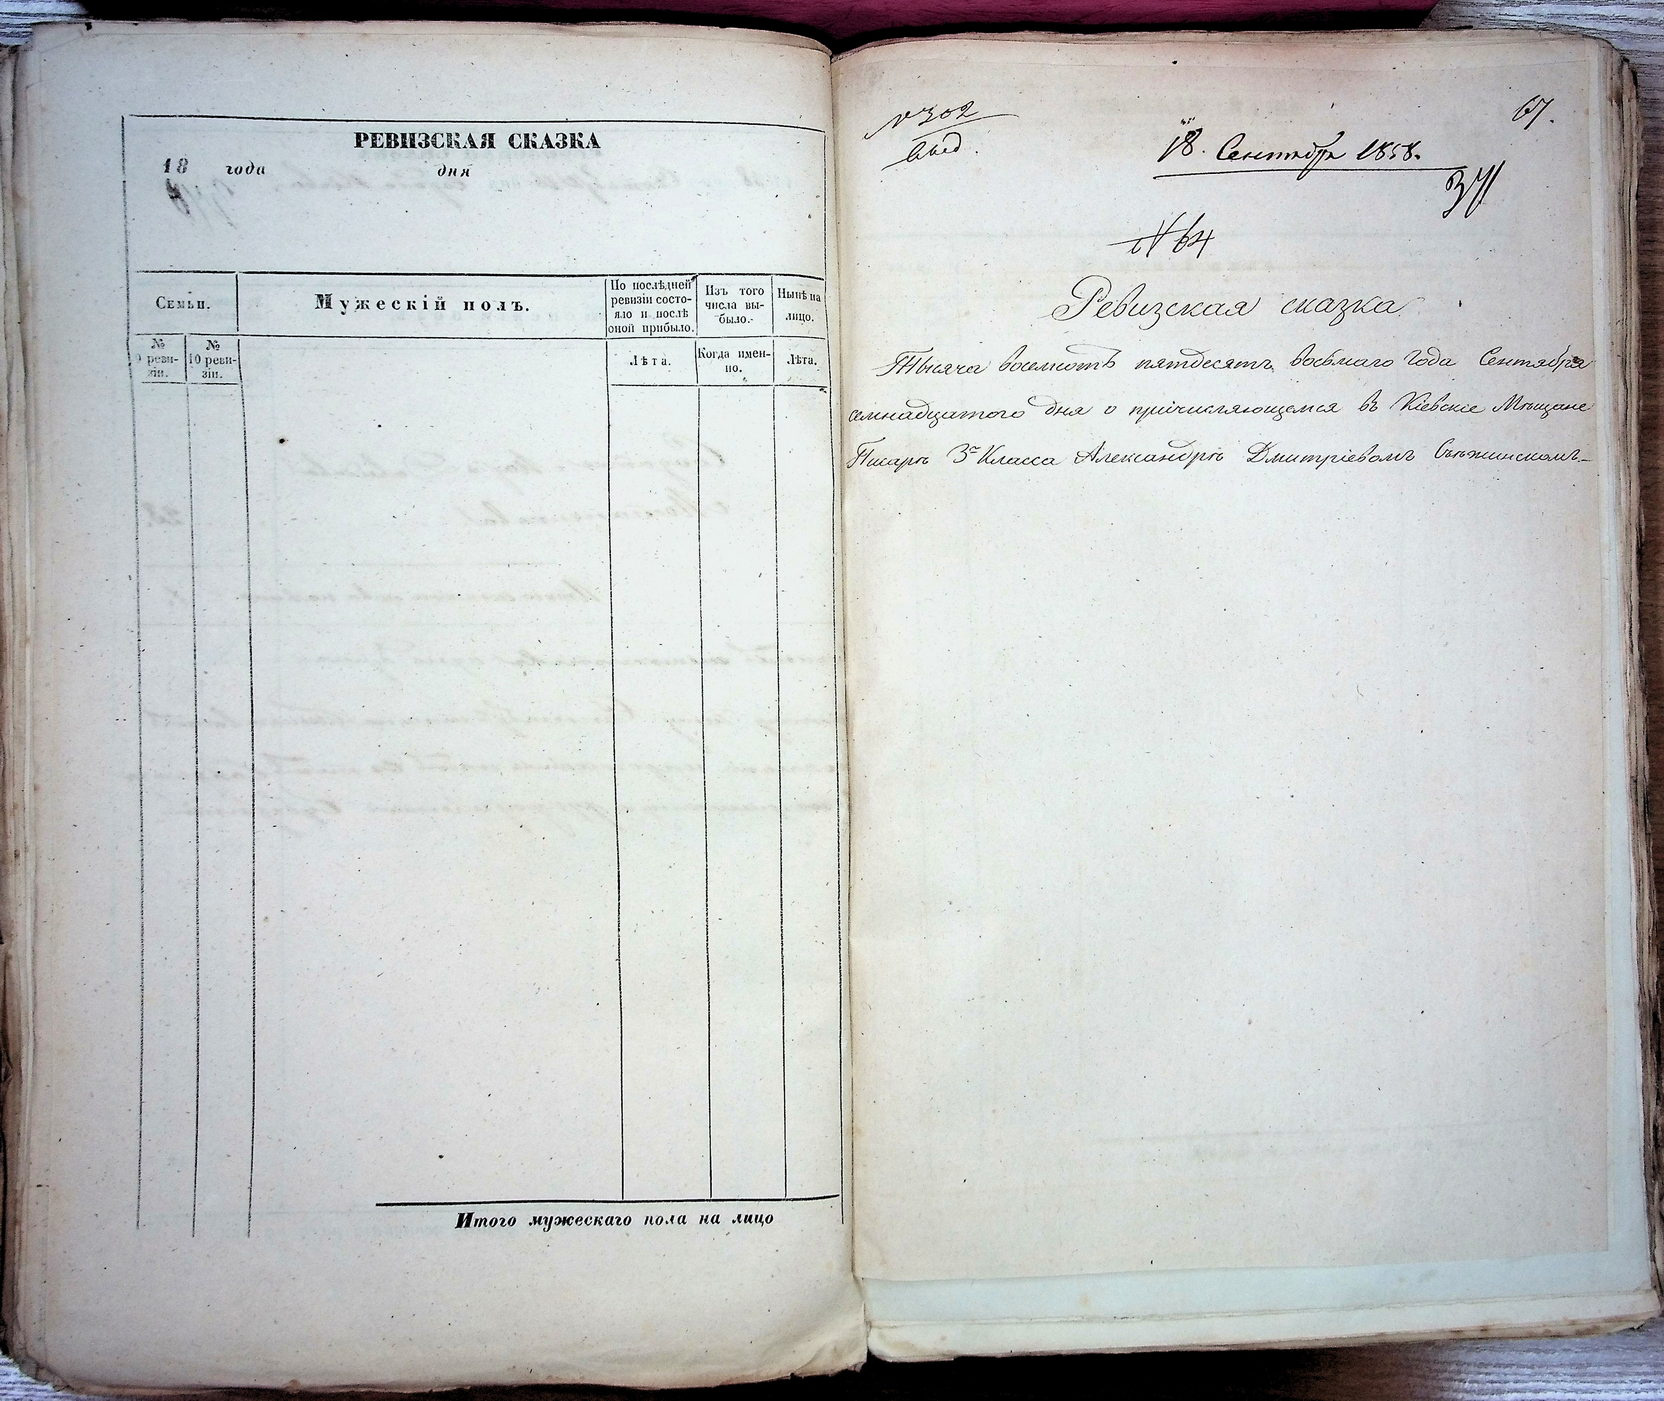 РЕВИЗСКАЯ СКАЗКА
18 года дня
Семьи.
Мужескій полъ.
По послѣдней ревизіи состо-
яло и послѣ
оной прибыло.
Изъ того
числа вы-
было.
Нынѣ на
лицо.
№
9 реви-
зіи.
№
10 реви-
зіи.
Лѣта.
Когда имен-
но.
Лѣта.
Итого мужескаго пола на лицо
№ 302
67.
18 Сентября 1858.
№ 64
Ревизская сказка
Тысяча восемсотъ пятдесятъ восьмаго года Сентября
семнадцатого дня о причисляющемся въ Кіевскіе Мѣщане
Писарѣ 3го Класса Александрѣ Дмитріевомъ